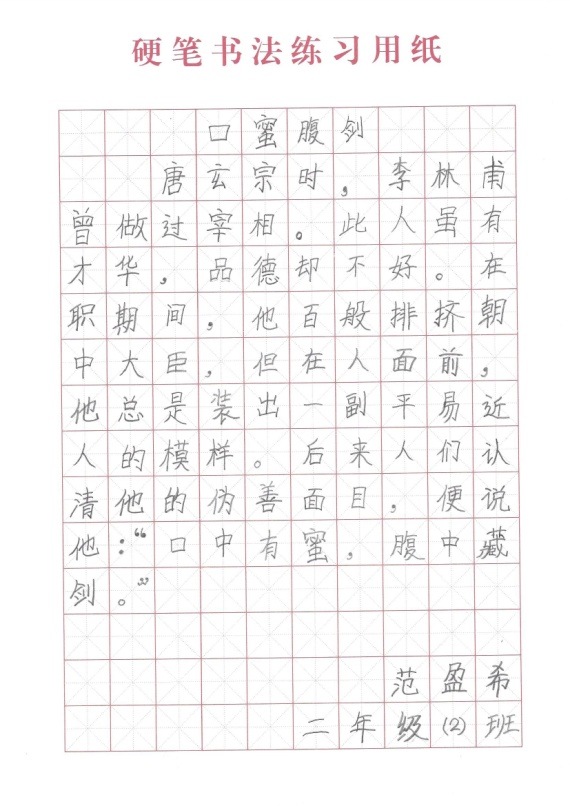 硬笔书法练习用纸
口蜜腹剑
唐玄宗时，李林甫
曾做过宰相。此人虽有
才华，品德却不好。在
职期间，他百般排挤朝
中大臣，但在人面前，
他总是装出一副平易近
人的模样。后来人们认
清他的伪善面目，便说
他：“口中有蜜，腹中藏
剑。”
范盈希
二年级(2)班